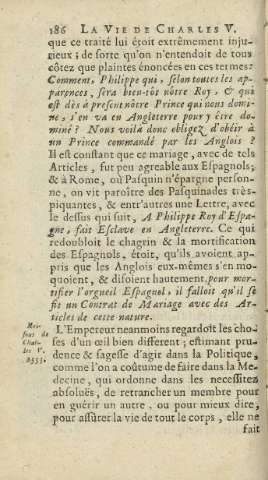 186 LA VIE DE CHARLES V.
que ce traité lui étoit extrêmement inju-
rieux ; de sorte qu'on n'entendoit de tous
côtez que plaintes énoncées en ces termes:
Comment, Philippe qui, selon toutes les ap-
parences, sera bien-tôt nôtre Roy, & qui
est dès à present nôtre Prince qui nous domi-
ne, s'en va en Angleterre pour y être do-
miné ? Nous voilà donc obligez d'obéir à
un Prince commandé par les Anglois ?
Il est constant que ce mariage, avec de tels
Articles, fut peu agreable aux Espagnols,
& à Rome, où Pasquin n'épargne person-
ne, on vit paroître des Pasquinades très-
piquantes, & entr'autres une Lettre, avec
le dessus qui suit, A Philippe Roy d'Espa-
gne, fait Esclave en Angleterre. Ce qui
redoubloit le chagrin & la mortification
des Espagnols, étoit, qu'ils avoient ap-
pris que les Anglois eux-mêmes s'en mo-
quoient, & disoient hautement pour mor-
tifier l'orgueil Espagnol, il falloit qu'il se
fit un Contrat de Mariage avec des Ar-
ticles de cette nature.
L'Empereur neanmoins regardoit les cho-
ses d'un œil bien different ; estimant pru-
dence & sagesse d'agir dans la Politique,
comme l'on a coûtume de faire dans la Me-
decine, qui ordonne dans les necessitez
absoluës, de retrancher un membre pour
en guérir un autre, ou pour mieux dire,
pour assûrer la vie de tout le corps, elle ne
fait
Rai-
sons de
Char-
les V.
1553.